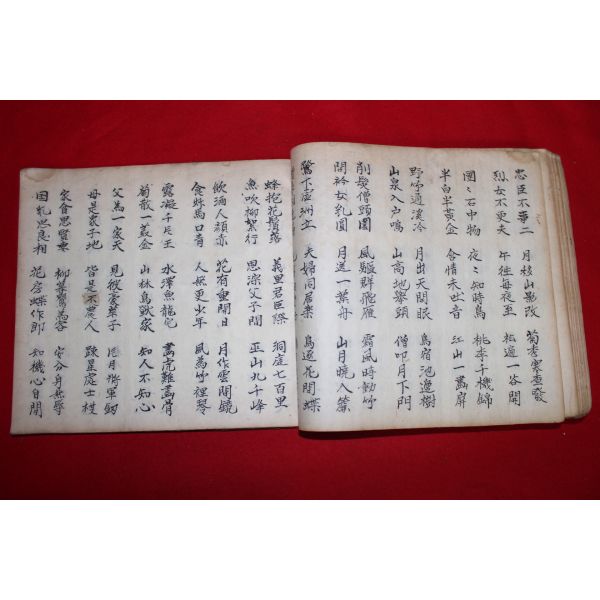 忠臣不事二 月移山影改 菊秀發
烈女不更夫 每夜至 松通一谷開
團々石中物 夜々知時鳥 桃李千機錦
半白半黃金 含情未吐音 江山一畵屛
野 通溪冷 月出天開眼 鳥宿池邊樹
山泉入戶鳴 山高地擧頭 僧叩月下門
削髮僧頭圓 風驅群飛雁 霜風時動竹
開衿女乳圓 月送一葉舟 山月入簾
鷺下洲立 夫婦同居樂 鳥逐花間蝶
蜂抱花鬚落 義重君臣際 洞庭七百里
魚吹柳絮行 恩深父子間 巫山九千峰
飮酒人顔赤 花有重開日 月作雲開鏡
食草馬口靑 人無更少年 風爲竹裡琴
露凝千片玉 水澤魚龍宅 畵虎難畵骨
菊散一叢金 山林鳥獸家 知人不知心
父爲一家天 見彼子 月將軍釖
母是家子地 皆是不農人 踈星處士棋
家貧思賢妻 柳葉鶯爲客 安分身無辱
國亂思良相 花房蝶作郞 知機心自閑